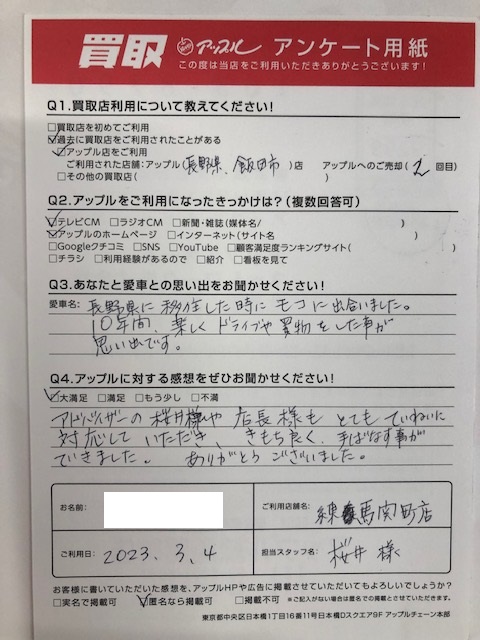 買取 アップル アンケート用紙
この度は当店をご利用いただきありがとうございます!
Q1.買取店利用について教えてください!
□買取店を初めてご利用
☑過去に買取店をご利用されたことがある
☑アップル店をご利用
ご利用された店舗:アップル(長野県、飯田市)店 アップルへのご売却(2回目)
□その他の買取店( )
Q2.アップルをご利用になったきっかけは?(複数回答可)
☑テレビCM □ラジオCM □新聞・雑誌(媒体名/ )
☑アップルのホームページ □インターネット(サイト名 )
□Googleクチコミ □SNS □YouTube □顧客満足度ランキングサイト( )
□チラシ □利用経験があるので □紹介 □看板を見て
Q3.あなたと愛車との思い出をお聞かせください!
愛車名: 長野県に移住した時にモコに出合いました。
10年間、楽しくドライブや買物をした事が
思い出です。
Q4.アップルに対する感想をぜひお聞かせください!
☑大満足 □満足 □もう少し □不満
アドバイザーの桜井様や店長様もとてもていねいに
対応していただき、きもち良く、手ばなす事が
できました。 ありがとうございました。
お名前: ご利用店舗名: 練馬関町店
ご利用日: 2023.3.4 担当スタッフ名: 桜井様
お客様に書いていただいた感想を、アップルHPや広告に掲載させていただいてもよろしいでしょうか?
□実名で掲載可 ☑匿名なら掲載可 □掲載不可 ※ご記入がない場合は匿名での掲載とさせていただきます。
東京都中央区日本橋1丁目16番11号日本橋Dスクエア9F アップルチェーン本部